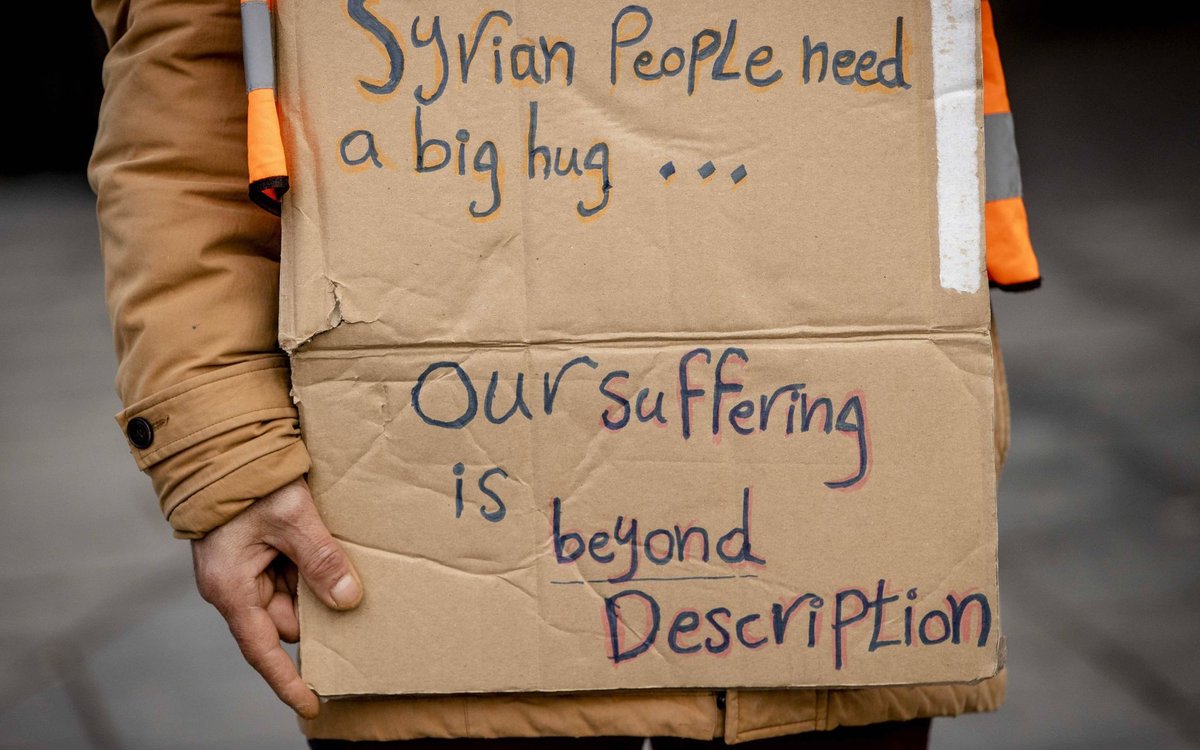 Syrian People need
a big hug ...
Our suffering
is
beyond
Description